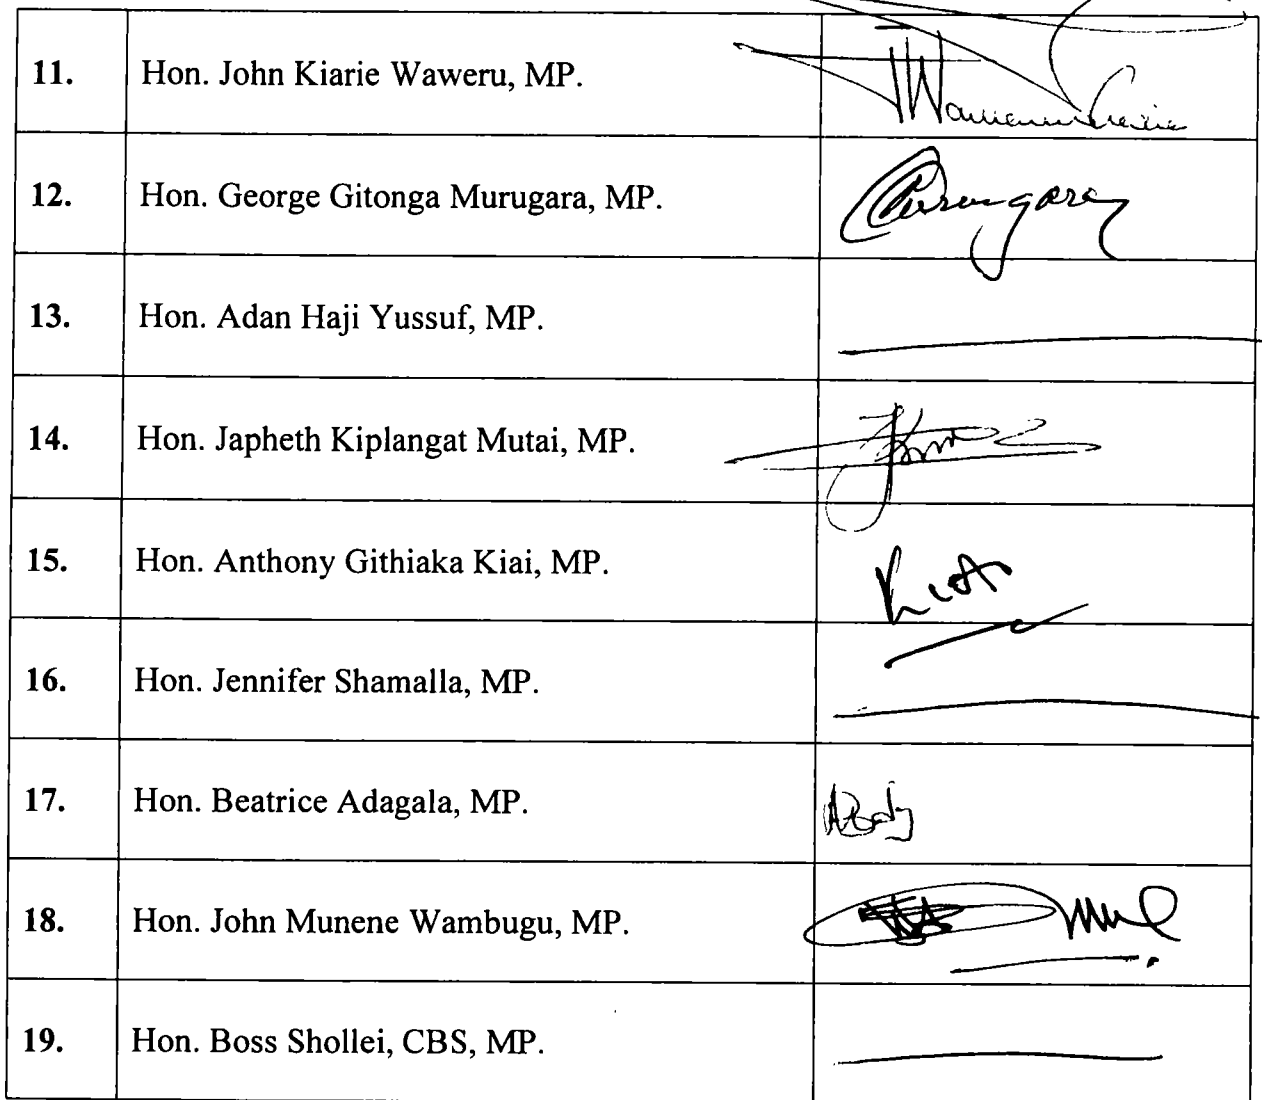 11. Hon. John Kiarie Waweru, MP.
12. Hon. George Gitonga Murugara, MP. Murungara
13. Hon. Adan Haji Yussuf, MP.
14. Hon. Japheth Kiplangat Mutai, MP.
15. Hon. Anthony Githiaka Kiai, MP.
16. Hon. Jennifer Shamalla, MP.
17. Hon. Beatrice Adagala, MP.
18. Hon. John Munene Wambugu, MP.
19. Hon. Boss Shollei, CBS, MP.